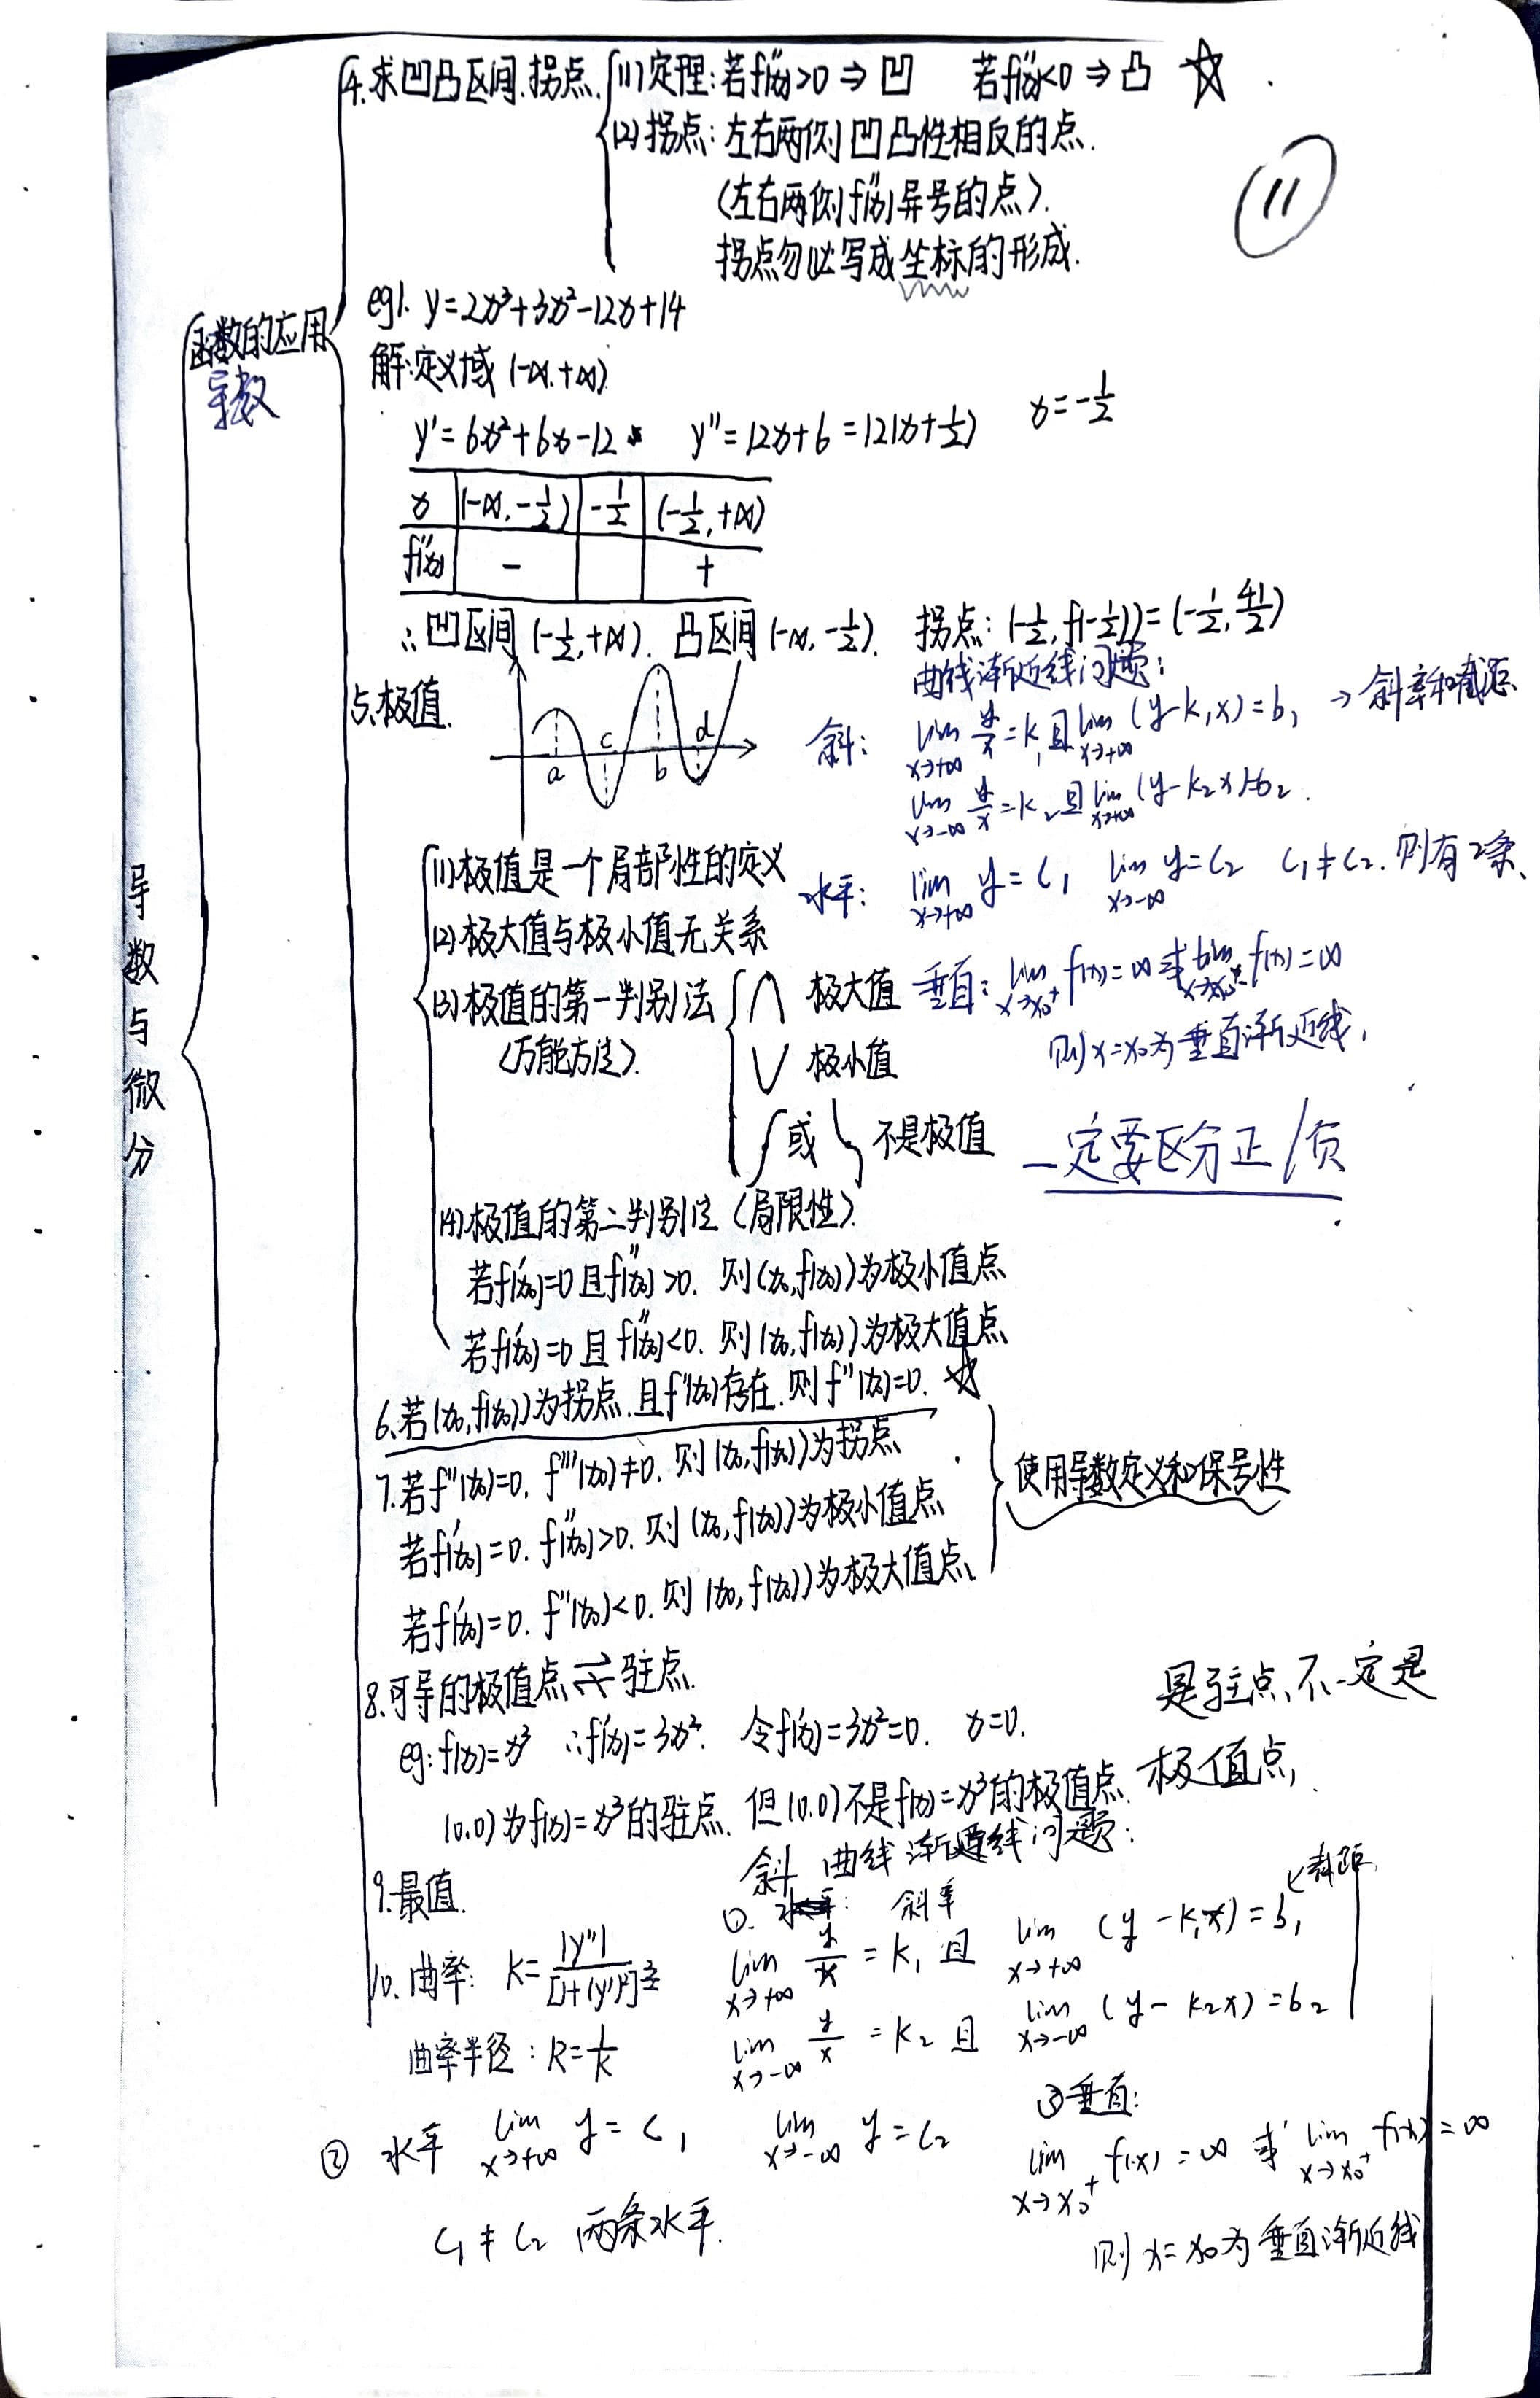 4.求凹凸区间.拐点.
(1)定理:若f''(x)>0⇒凹 若f''(x)<0⇒凸 ☆
(2)拐点:左右两侧凹凸性相反的点.
(左右两侧f''(x)异号的点).
拐点勿必写成坐标的形成.
11
函数的应用
导数
导数与微分
eg1. y=2x³+3x²-12x+14
解:定义域(-∞.+∞)
y'=6x²+6x-12 y''=12x+6=12(x+1/2) x=-1/2
x (-∞,-1/2) -1/2 (-1/2,+∞)
f''(x) - +
∴凹区间(-1/2,+∞). 凸区间(-∞,-1/2). 拐点:(-1/2,f(-1/2))=(-1/2,41/2)
5.极值.
a c b d
曲线渐近线问题:
斜: lim x→+∞ y/x=k₁且lim x→+∞ (y-k₁x)=b₁ →斜率和截距
lim x→-∞ y/x=k₂且lim x→+∞ (y-k₂x)=b₂.
水平: lim x→+∞ y=C₁ lim x→-∞ y=C₂ C₁≠C₂.则有2条、
垂直: lim x→x₀⁺ f(x)=∞或lim f(x)=∞
则x=x₀为垂直渐近线,
一定要区分正/负
(1)极值是一个局部性的定义
(2)极大值与极小值无关系
(3)极值的第一判别法
(万能方法).
极大值
极小值
或 不是极值
(4)极值的第二判别法(局限性).
若f'(x₀)=0且f''(x₀)>0. 则(x₀,f(x₀))为极小值点
若f'(x₀)=0且f''(x₀)<0. 则(x₀,f(x₀))为极大值点
6.若(x₀,f(x₀))为拐点.且f''(x₀)存在.则f''(x₀)=0. ☆
7.若f''(x₀)=0. f'''(x₀)≠0. 则(x₀,f(x₀))为拐点
若f'(x₀)=0. f''(x₀)>0. 则(x₀,f(x₀))为极小值点
若f'(x₀)=0. f''(x₀)<0. 则(x₀,f(x₀))为极大值点.
使用导数定义和保号性
8.可导的极值点⇌驻点.
是驻点、不一定是
极值点,
eg:f(x)=x³ ∴f'(x)=3x². 令f'(x)=3x²=0. x=0.
(0.0)为f(x)=x³的驻点. 但(0.0)不是f(x)=x³的极值点.
9.最值.
10.曲率: K=|y''|/[1+(y')²]^(3/2)
曲率半径:R=1/K
斜 曲线渐近线问题:
①. 斜率
lim x→+∞ y/x=k₁且 lim x→+∞ (y-k₁x)=b₁
lim x→-∞ y/x=k₂且 lim x→-∞ (y-k₂x)=b₂
② 水平 lim x→+∞ y=C₁ lim x→-∞ y=C₂
C₁≠C₂ 两条水平.
③垂直:
lim x→x₀⁺ f(x)=∞ 或 lim x→x₀⁺ f(x)=∞
则x=x₀为垂直渐近线